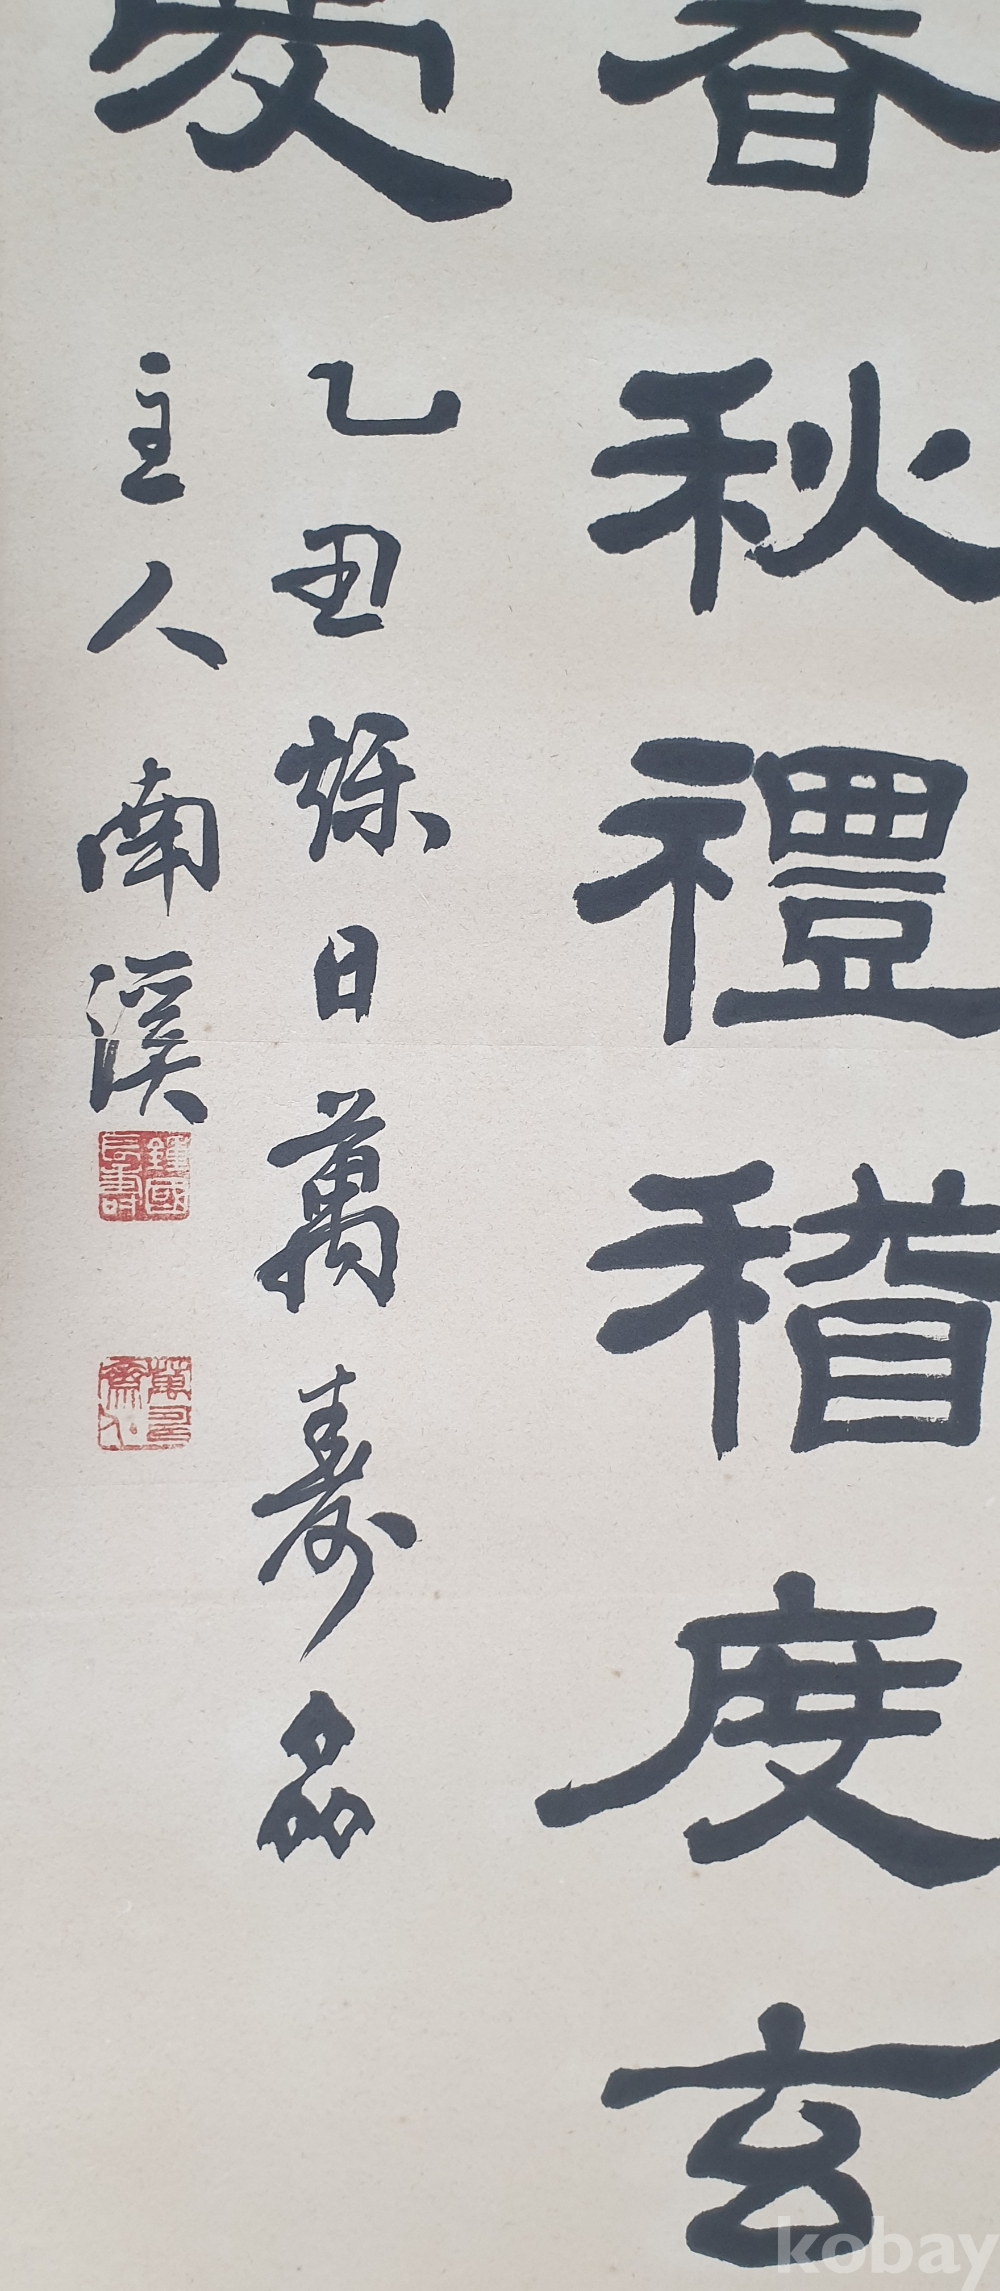 春秋禮稽度玄
乙丑烁日萬壽
主人南溪
kobay